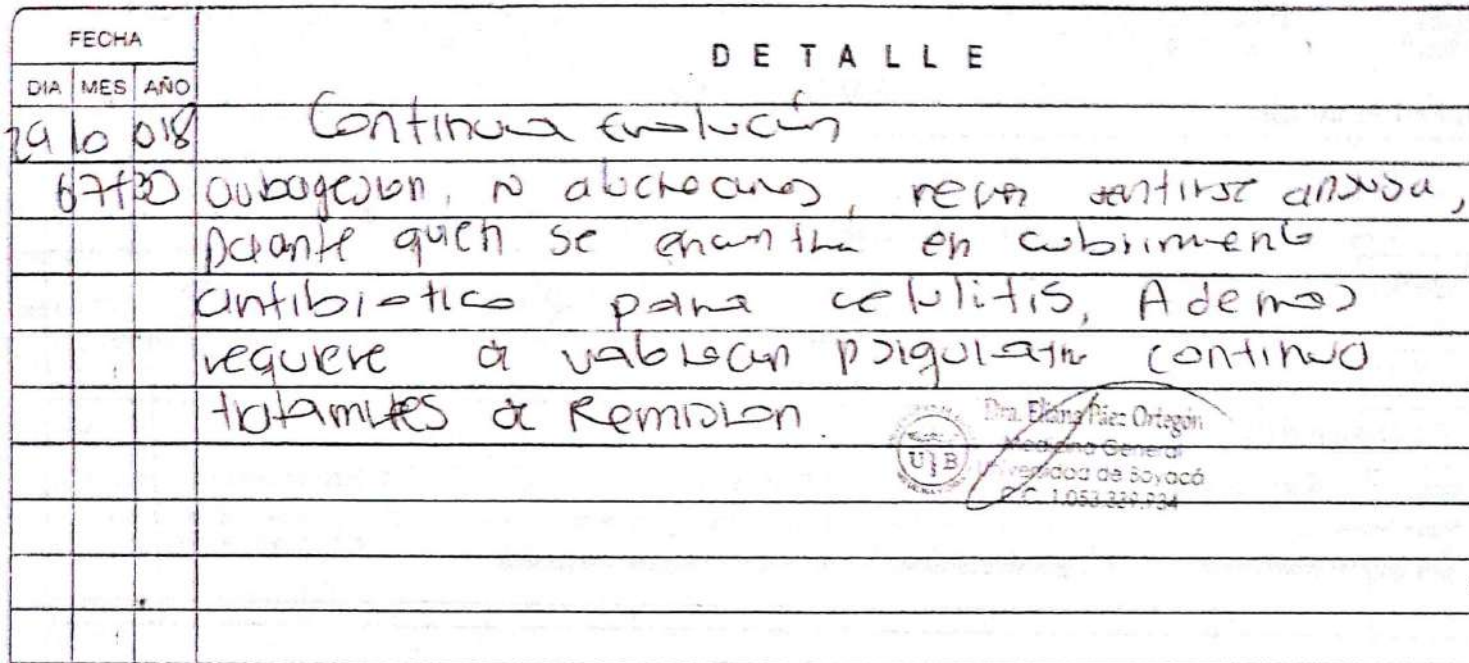 FECHA
DETALLE
DIA MES AÑO
29 10 018 Continua Evolución
07+30 alucinaciones, sentirse ansiosa,
quien se encuentra en cubrimiento
antibiotico para celulitis, Ademas
requiere valoracion psiquiatr continuo
Remision.
Dra. Eliana Páez Ortegón
Medicina General
U B Universidad de Boyacá
C.C. 1.053.339.934